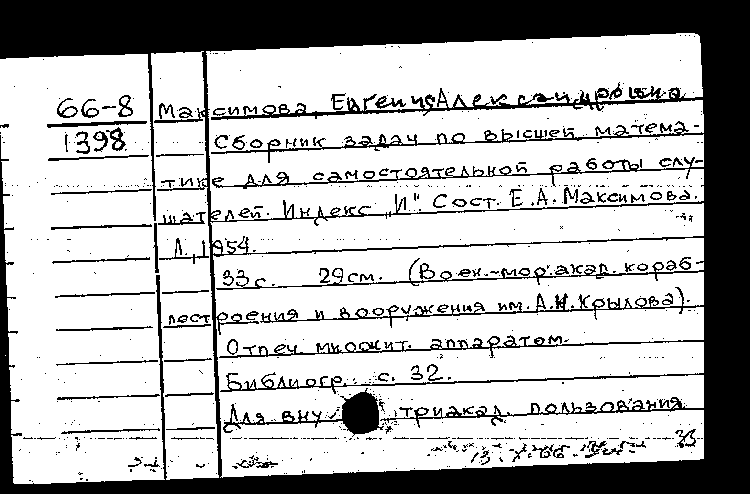 66-8 Максимова, Евгения Александровна
1398 Сборник задач по высшей матема-
тике для самостоятельной работы слу-
шателей. Индекс „И". Сост. Е.А. Максимова.
Л., 1954.
33 с. 29см. (Воен.-мор.акад. кораб-
лестроения и вооружения им. А.Н. Крылова).
Отпеч. множит. аппаратом.
Библиогр.: с. 32.
Для вну триакад. пользования
33